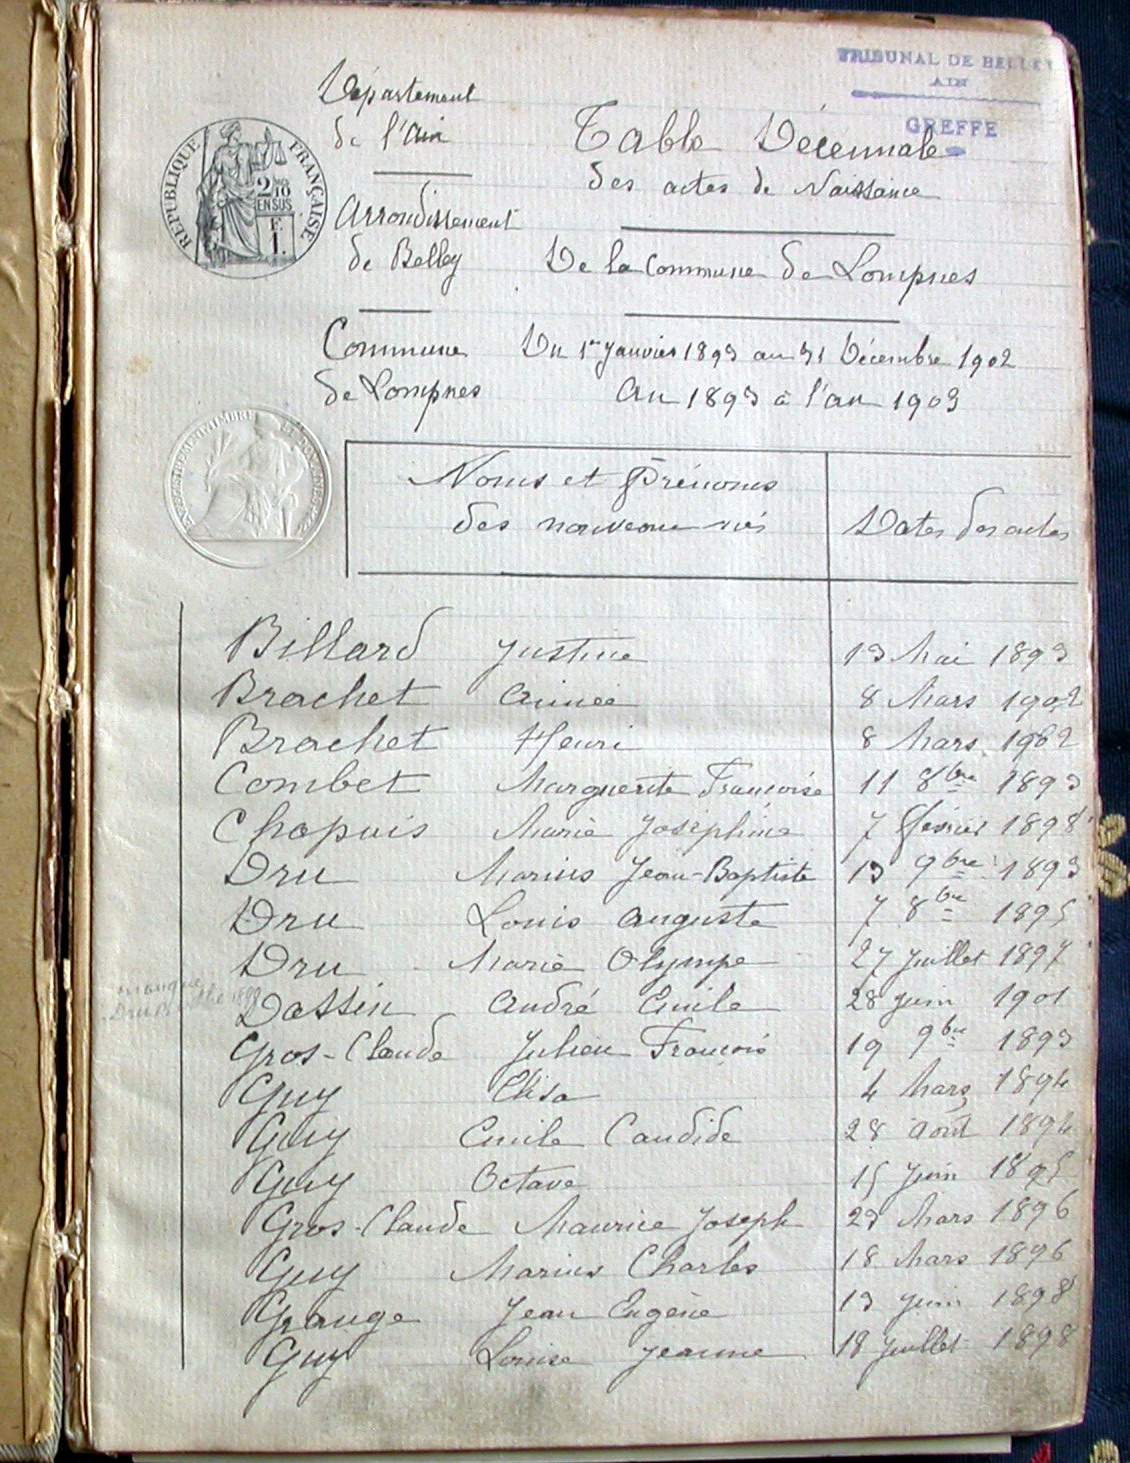 TRIBUNAL DE BELLEY
AIN
GREFFE
Département
de l'Ain
RÉPUBLIQUE FRANÇAISE
2 10
EN SUS
F
1
Table Décennale
des actes de Naissance
Arrondissement
de Belley
De la Commune de Lompnes
Commune
de Lompnes
Du 1er Janvier 1893 au 31 Décembre 1902
An 1893 à l'an 1903
Noms et Prénoms
des nouveau nés
Dates des actes
Billard Justine 13 Mai 1893
Brachet Aimée 8 Mars 1902
Brachet Henri 8 Mars 1902
Combet Marguerite Françoise 11 8bre 1893
Chapuis Marie Joséphine 7 Février 1898
Dru Marius Jean-Baptiste 13 9bre 1893
Dru Louis Auguste 7 8bre 1895
Dru Marie Olympe 27 Juillet 1897
manque
Dru 1899
Dassin André Emile 28 Juin 1901
Gros-Claude Julien François 19 9bre 1893
Guy Elisa 4 Mars 1894
Guy Emile Candide 28 Août 1894
Guy Octave 15 Juin 1895
Gros-Claude Maurice Joseph 23 Mars 1896
Guy Marius Charles 18 Mars 1896
Grange Jean Eugène 13 Juin 1898
Guy Louise Jeanne 18 Juillet 1898